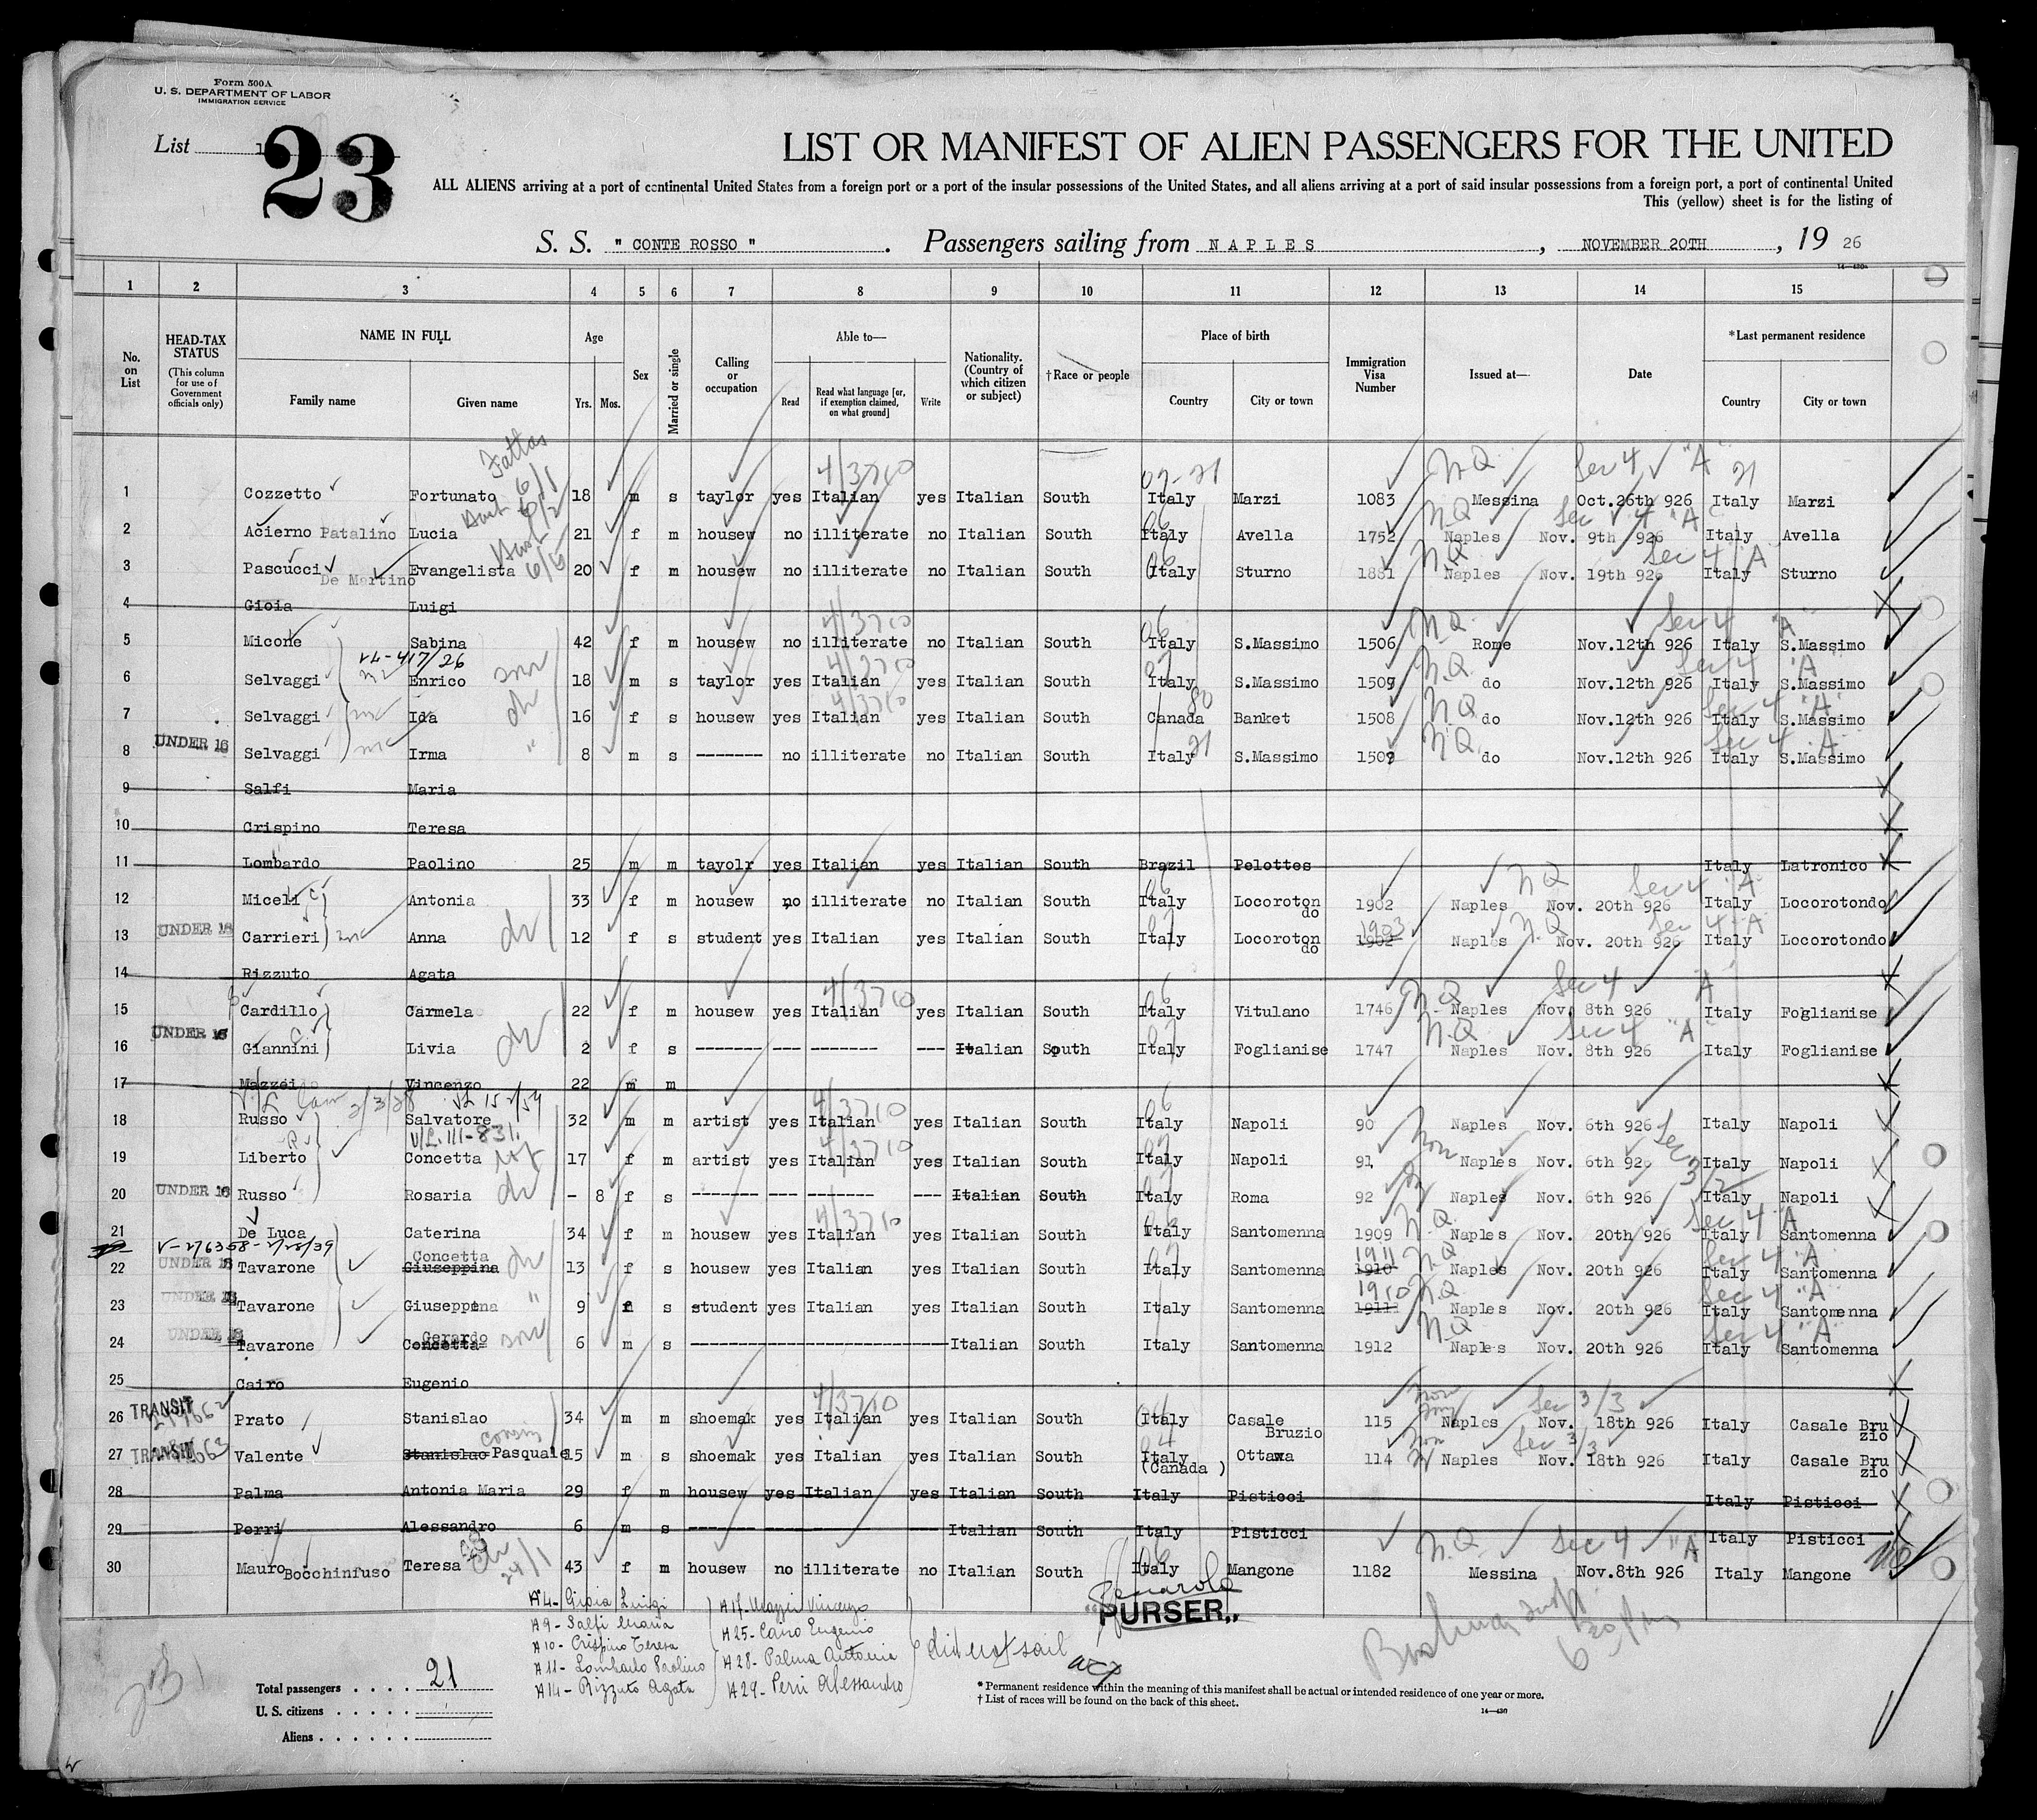 Form 500A
U. S. DEPARTMENT OF LABOR
IMMIGRATION SERVICE
List 1
23
LIST OR MANIFEST OF ALIEN PASSENGERS FOR THE UNITED
ALL ALIENS arriving at a port of continental United States from a foreign port or a port of the insular possessions of the United States, and all aliens arriving at a port of said insular possessions from a foreign port, a port of continental United
This (yellow) sheet is for the listing of
S. S. " CONTE ROSSO " . Passengers sailing from N A P L E S , NOVEMBER 20TH , 19 26
14—430a
1 2 3 4 5 6 7 8 9 10 11 12 13 14 15
No. on List HEAD-TAX STATUS (This column for use of Government officials only) NAME IN FULL Family name Given name Age Yrs. Mos. Sex Married or single Calling or occupation Able to— Read Read what language [or, if exemption claimed, on what ground] Write Nationality. (Country of which citizen or subject) †Race or people Place of birth Country City or town Immigration Visa Number Issued at— Date *Last permanent residence Country City or town
4/3710 N.Q. Sec 4 "A"
1 Cozzetto Fortunato 18 m s taylor yes Italian yes Italian South Italy Marzi 1083 Messina Oct.26th 926 Italy Marzi
N.Q. Sec 4 "A"
2 Acierno Patalino Lucia 21 f m housew no illiterate no Italian South Italy Avella 1752 Naples Nov. 9th 926 Italy Avella
N.Q. Sec 4 "A"
3 Pascucci De Martino Evangelista 20 f m housew no illiterate no Italian South Italy Sturno 1881 Naples Nov. 19th 926 Italy Sturno
4 Gioia Luigi
4/3710 N.Q. Sec 4 "A"
5 Micone Sabina 42 f m housew no illiterate no Italian South Italy S.Massimo 1506 Rome Nov.12th 926 Italy S.Massimo
4/3710 N.Q. Sec 4 "A"
6 Selvaggi Enrico son 18 m s taylor yes Italian yes Italian South Italy S.Massimo 1507 do Nov.12th 926 Italy S.Massimo
4/3710 N.Q. Sec 4 "A"
7 Selvaggi Ida 16 f s housew yes Italian yes Italian South Canada Banket 1508 do Nov.12th 926 Italy S.Massimo
UNDER 16 N.Q. Sec 4 "A"
8 Selvaggi Irma " 8 m s ------- no illiterate no Italian South Italy S.Massimo 1509 do Nov.12th 926 Italy S.Massimo
9 Salfi Maria
10 Crispino Teresa
11 Lombardo Paolino 25 m m tayolr yes Italian yes Italian South Brazil Pelottes Italy Latronico
N.Q. Sec 4 "A"
12 Miceli Antonia 33 f m housew no illiterate no Italian South Italy Locoroton do 1902 Naples Nov. 20th 926 Italy Locorotondo
UNDER 16 1903 N.Q. Sec 4 "A"
13 Carrieri Anna 12 f s student yes Italian yes Italian South Italy Locoroton do 1902 Naples Nov. 20th 926 Italy Locorotondo
14 Rizzuto Agata
4/3710 N.Q. Sec 4 "A"
15 Cardillo Carmela 22 f m housew yes Italian yes Italian South Italy Vitulano 1746 Naples Nov. 8th 926 Italy Foglianise
UNDER 16 N.Q. Sec 4 "A"
16 Giannini Livia 2 f s ------- --- ------- --- Italian South Italy Foglianise 1747 Naples Nov. 8th 926 Italy Foglianise
17 Mazzei Vincenzo 22 m m
4/3710
18 Russo Salvatore 32 m m artist yes Italian yes Italian South Italy Napoli 90 Naples Nov. 6th 926 Italy Napoli
4/3710
19 Liberto Concetta 17 f m artist yes Italian yes Italian South Italy Napoli 91 Naples Nov. 6th 926 Italy Napoli
20 UNDER 16 Russo Rosaria - 8 f s ------- --- ------- --- Italian South Italy Roma 92 Naples Nov. 6th 926 Italy Napoli
4/3710 N.Q. Sec 4 "A"
21 De Luca Caterina 34 f m housew yes Italian yes Italian South Italy Santomenna 1909 Naples Nov. 20th 926 Italy Santomenna
Concetta 1911 N.Q. Sec 4 "A"
22 UNDER 16 Tavarone Giuseppina 13 f s housew yes Italian yes Italian South Italy Santomenna 1910 Naples Nov. 20th 926 Italy Santomenna
1910 N.Q. Sec 4 "A"
23 UNDER 16 Tavarone Giuseppina " 9 f s student yes Italian yes Italian South Italy Santomenna 1911 Naples Nov. 20th 926 Italy Santomenna
UNDER 16 Gerardo son N.Q. Sec 4 "A"
24 Tavarone Concetta 6 m s -------------------------- Italian South Italy Santomenna 1912 Naples Nov. 20th 926 Italy Santomenna
25 Cairo Eugenio
TRANSIT 4/3710 Sec 3/3
26 Prato Stanislao 34 m m shoemak yes Italian yes Italian South Italy Casale Bruzio 115 Naples Nov. 18th 926 Italy Casale Bru zio
cousin Sec 3/3
27 TRANSIT Valente Stanislao Pasquale 15 m s shoemak yes Italian yes Italian South Italy (Canada ) Ottawa 114 Naples Nov. 18th 926 Italy Casale Bru zio
28 Palma Antonia Maria 29 f m housew yes Italian yes Italian South Italy Pisticci Italy Pisticci
29 Perri Alessandro 6 m s ---------------- Italian South Italy Pisticci Italy Pisticci
N.Q. Sec 4 "A"
30 Mauro Bocchinfuso Teresa 43 f m housew no illiterate no Italian South Italy Mangone 1182 Messina Nov.8th 926 Italy Mangone
"PURSER"
A4- Gioia Luigi A17- Mazzei Vincenzo
A9- Salfi Maria A25- Cairo Eugenio
A10- Crispino Teresa
A11- Lombardo Paolino A28- Palma Antonia did not sail
A14- Rizzuto Agata A29- Perri Alessandro
Total passengers . . . . 21
U. S. citizens . . . . .
Aliens . . . . . .
* Permanent residence within the meaning of this manifest shall be actual or intended residence of one year or more.
† List of races will be found on the back of this sheet.
14—430